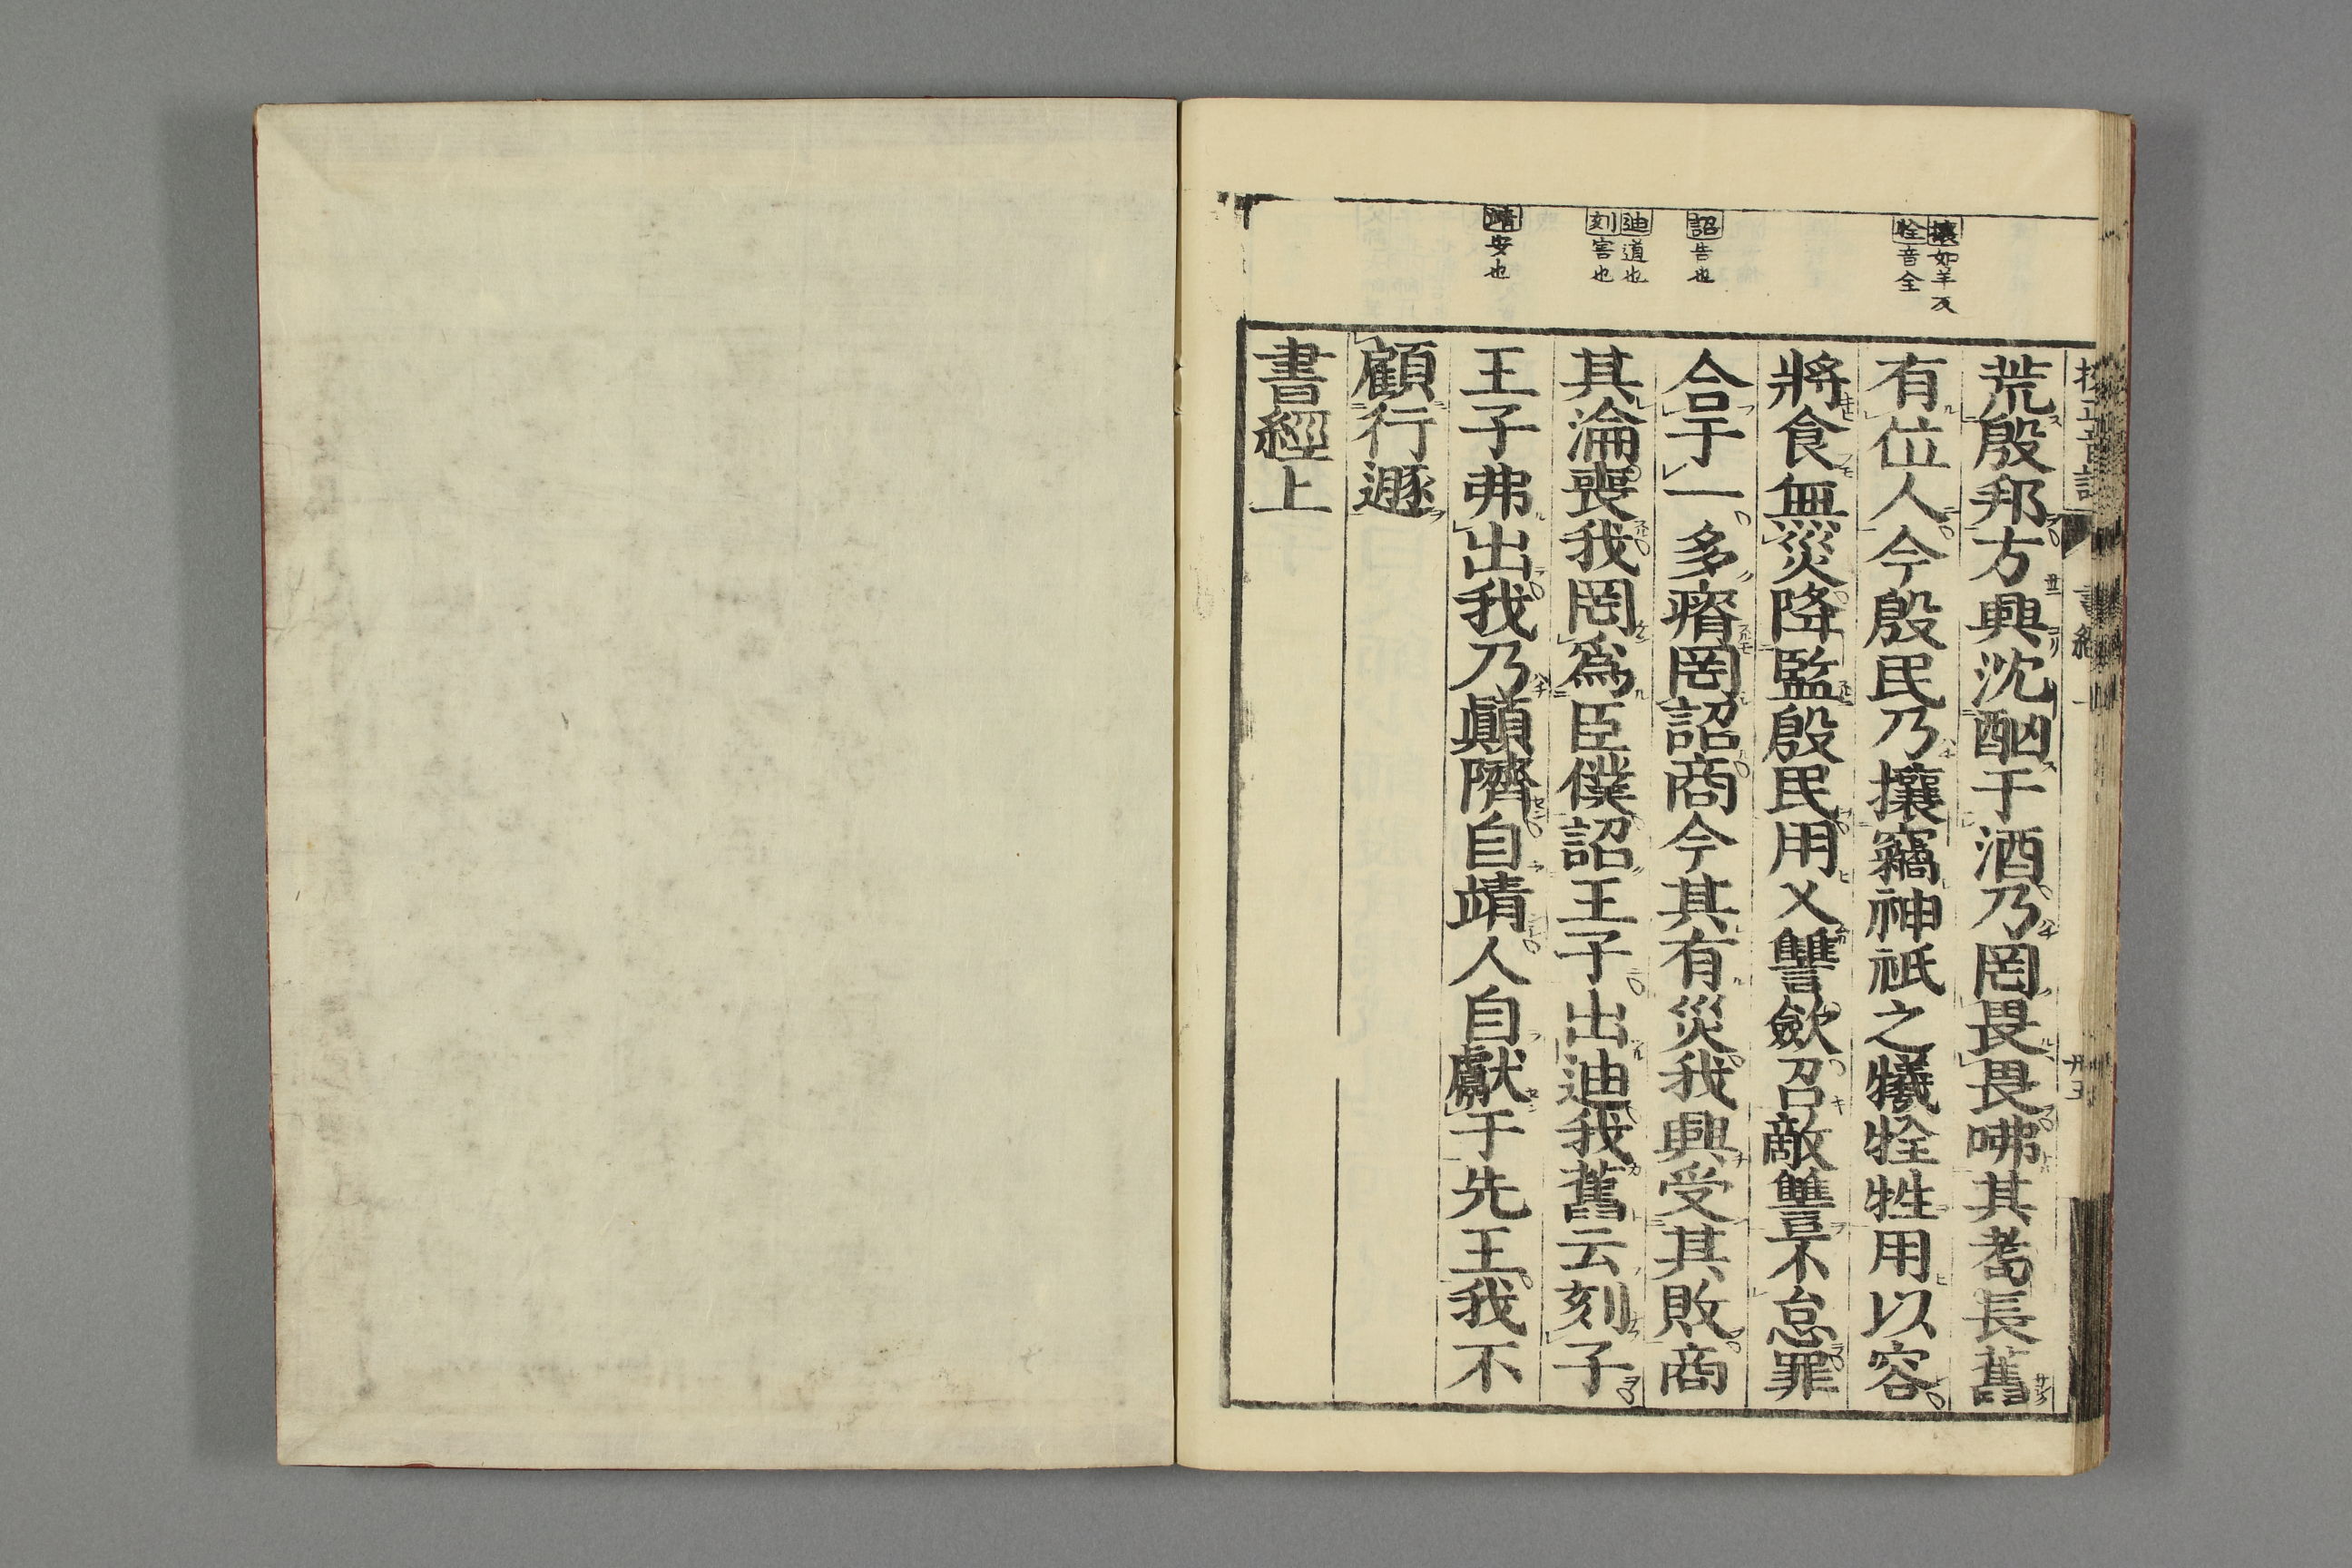 攘如羊反
牷音全
詔告也
迪道也
刻害也
靖安也
荒殷邦方興沈酗于酒乃罔畏畏咈其耇長舊
有位人今殷民乃攘竊神祇之犧牷牲用以容
將食無災降監殷民用乂讐斂召敵讐不怠罪
合于一多瘠罔詔商今其有災我興受其敗商
其淪喪我罔爲臣僕詔王子出迪我舊云刻子
王子弗出我乃顚隮自靖人自獻于先王我不
顧行遯
書經上